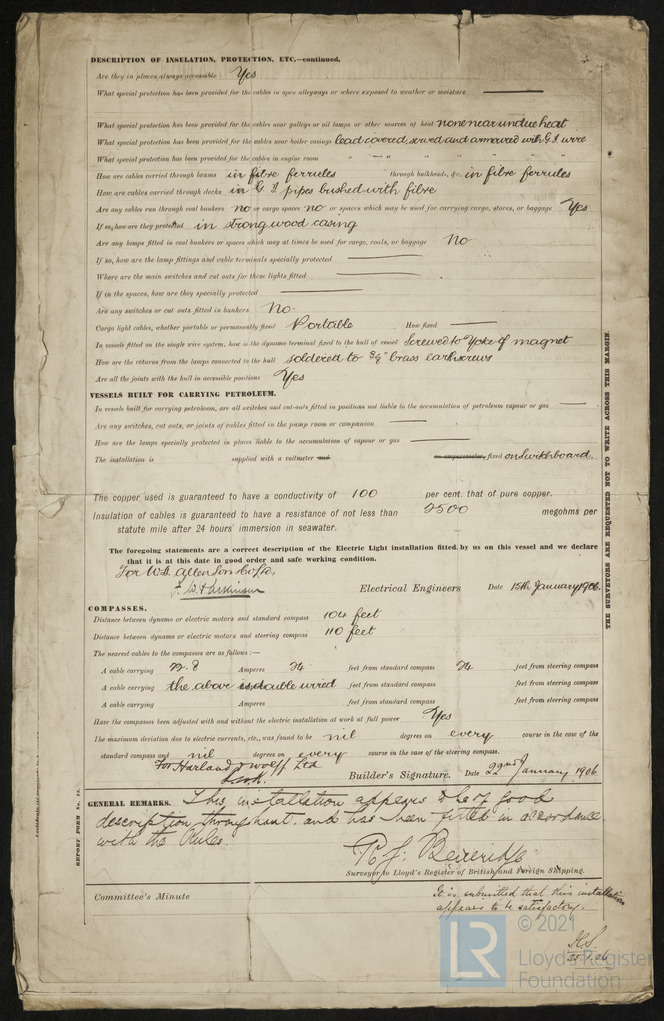 DESCRIPTION OF INSULATION, PROTECTION, ETC.—continued,
Are they in places always accessible Yes
What special protection has been provided for the cables in open alleyways or where exposed to weather or moisture ———
What special protection has been provided for the cables near galleys or oil lamps or other sources of heat none near undue heat
What special protection has been provided for the cables near boiler casings lead covered, served and armoured with G.I. wire
What special protection has been provided for the cables in engine room " " " " " " "
How are cables carried through beams in fibre ferrules through bulkheads, &c. in fibre ferrules
How are cables carried through decks in G I pipes bushed with fibre
Are any cables run through coal bunkers no or cargo spaces no or spaces which may be used for carrying cargo, stores, or baggage Yes
If so, how are they protected in strong wood casing
Are any lamps fitted in coal bunkers or spaces which may at times be used for cargo, coals, or baggage No
If so, how are the lamp fittings and cable terminals specially protected ———
Where are the main switches and cut outs for these lights fitted ———
If in the spaces, how are they specially protected ———
Are any switches or cut outs fitted in bunkers No
Cargo light cables, whether portable or permanently fixed Portable How fixed ———
In vessels fitted on the single wire system, how is the dynamo terminal fixed to the hull of vessel Screwed to Yoke of magnet
How are the returns from the lamps connected to the hull soldered to brass earth screws
Are all the joints with the hull in accessible positions Yes
VESSELS BUILT FOR CARRYING PETROLEUM.
In vessels built for carrying petroleum, are all switches and cut-outs fitted in positions not liable to the accumulation of petroleum vapour or gas ——
Are any switches, cut outs, or joints of cables fitted in the pump room or companion ——
How are the lamps specially protected in places liable to the accumulation of vapour or gas ———
The installation is supplied with a voltmeter and an amperemeter, fixed on Switchboard.
The copper used is guaranteed to have a conductivity of 100 per cent. that of pure copper.
Insulation of cables is guaranteed to have a resistance of not less than 2500 megohms per
statute mile after 24 hours' immersion in seawater.
The foregoing statements are a correct description of the Electric Light installation fitted by us on this vessel and we declare
that it is at this date in good order and safe working condition.
For W. H. Allen Son & Co Ltd,
W. Parkinson Electrical Engineers Date 15th January 1906.
COMPASSES.
Distance between dynamo or electric motors and standard compass 104 feet
Distance between dynamo or electric motors and steering compass 110 feet
The nearest cables to the compasses are as follows :—
A cable carrying 22.8 Amperes 24 feet from standard compass 24 feet from steering compass
A cable carrying the above is double wired feet from standard compass feet from steering compass
A cable carrying Amperes feet from standard compass feet from steering compass
Have the compasses been adjusted with and without the electric installation at work at full power Yes
The maximum deviation due to electric currents, etc., was found to be nil degrees on every course in the case of the
standard compass and nil degrees on every course in the case of the steering compass.
For Harland & Wolff Ltd
Builder's Signature. Date 22nd January 1906
GENERAL REMARKS. This installation appears to be of good
description throughout, and has been fitted in accordance
with the Rules.
R. J. Beveridge
Surveyor to Lloyd's Register of British and Foreign Shipping.
Committee's Minute
It is submitted that this installation
appears to be satisfactory.
THE SURVEYORS ARE REQUESTED NOT TO WRITE ACROSS THIS MARGIN.
REPORT FORM No. 13.
© 2021
LR
Lloyd's Register
Foundation